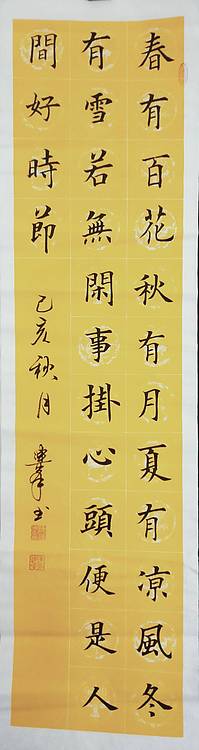 春有百花秋有月夏有凉風冬
有雪若無閑事掛心頭便是人
間好時節
己亥秋月
書